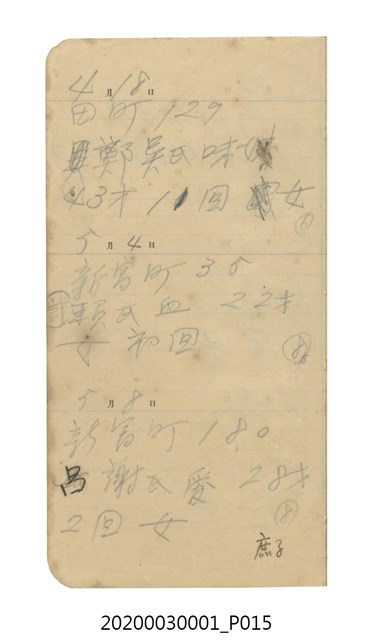 4月18日
田町 129
鄭吳氏味
43才 11回 女
⑥
5月4日
新富町 35
賴氏血 22才
女 初回
⑧
5月8日
新富町 180
呂謝氏愛 28才
⑧
2回 女
庶子
20200030001_P015